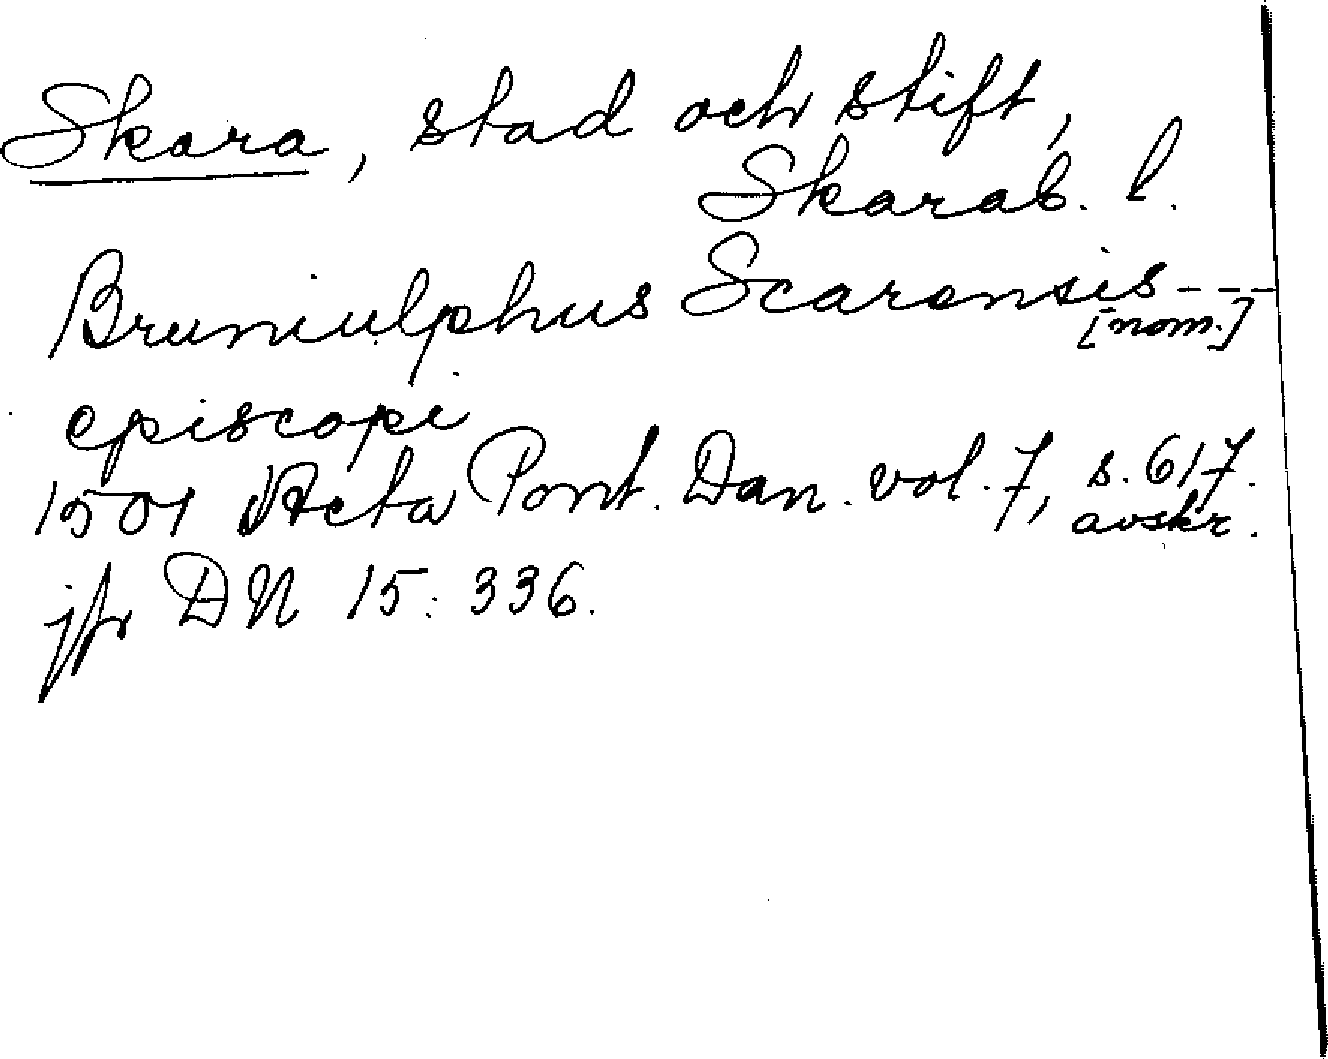 Skara, stad och stift,
Skarab. l.
Bruniulphus Scarensis ---
[nom.]
episcopi
1501 Acta Pont. Dan. vol. 7, s. 617.
avskr.
jfr DN 15: 336.